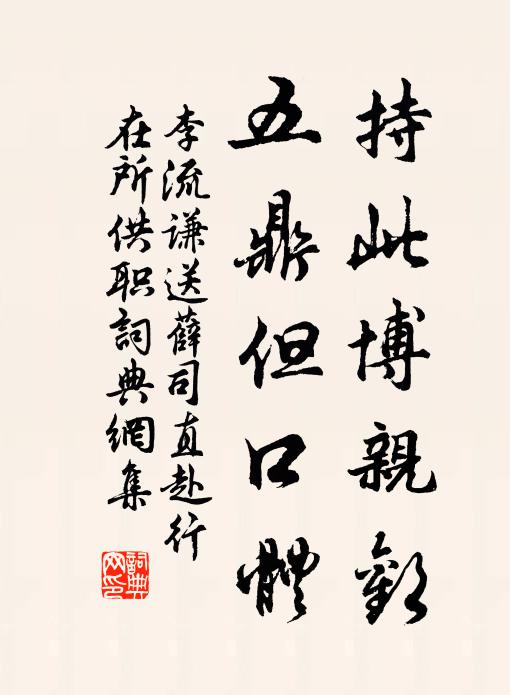 持此博親歡
五鼎但口體
李流谦送薛司直赴行
在所供职詞典網集
詞典
网印